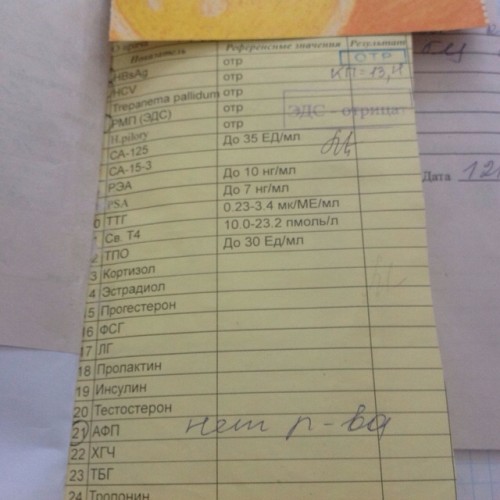 Показатель Референсные значения Результат
HBsAg отр ОТР
HCV отр КП=13,4
Trepanema pallidum отр
РМП (ЭДС) отр ЭДС - отрица
H.pilory отр
СА-125 До 35 ЕД/мл
СА-15-3
РЭА До 10 нг/мл
PSA До 7 нг/мл
0 ТТГ 0.23-3.4 мк/МЕ/мл
1 Св. Т4 10.0-23.2 пмоль/л
2 ТПО До 30 Ед/мл
3 Кортизол
4 Эстрадиол
15 Прогестерон
16 ФСГ
17 ЛГ
18 Пролактин
19 Инсулин
20 Тестостерон
21 АФП нет р-ва
22 ХГЧ
23 ТБГ
24 Тропонин
Дата 12